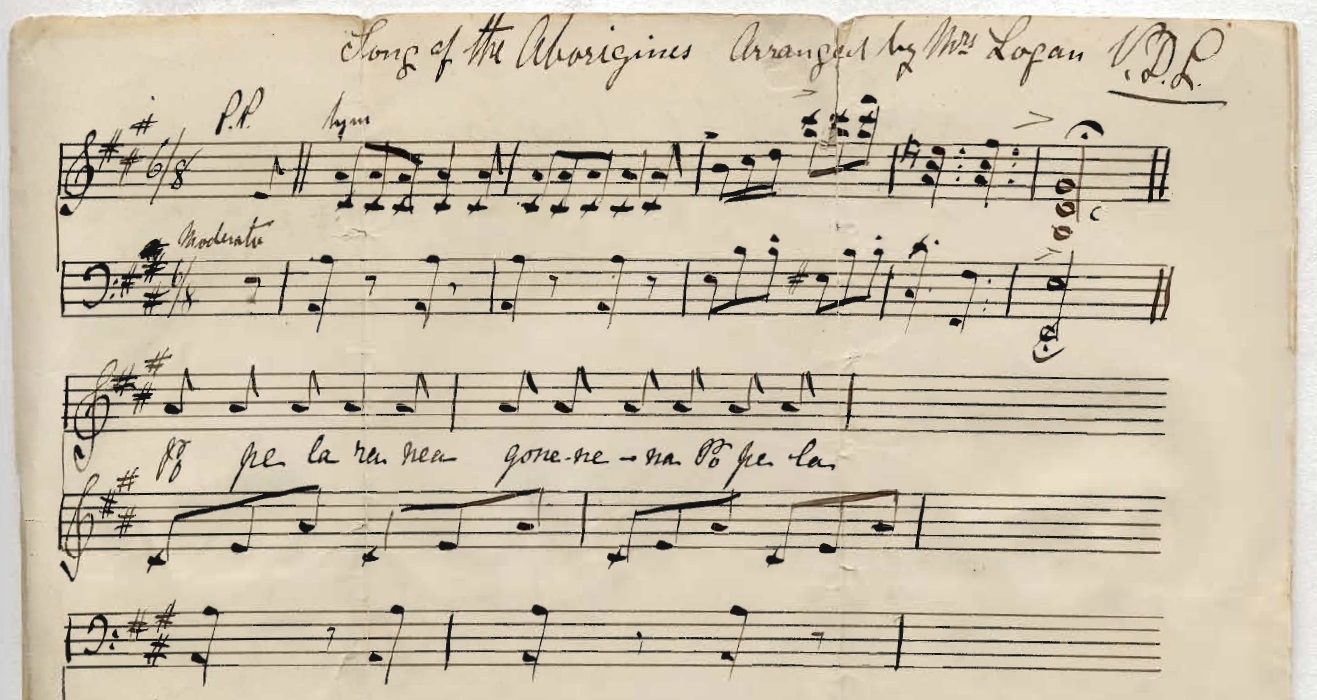 Song of the Aborigines Arranged by Mrs Logan V.D.L.
P.P.
6/8
Moderato
6/8
Po pe la ra nea gone-ne-na Po pe la